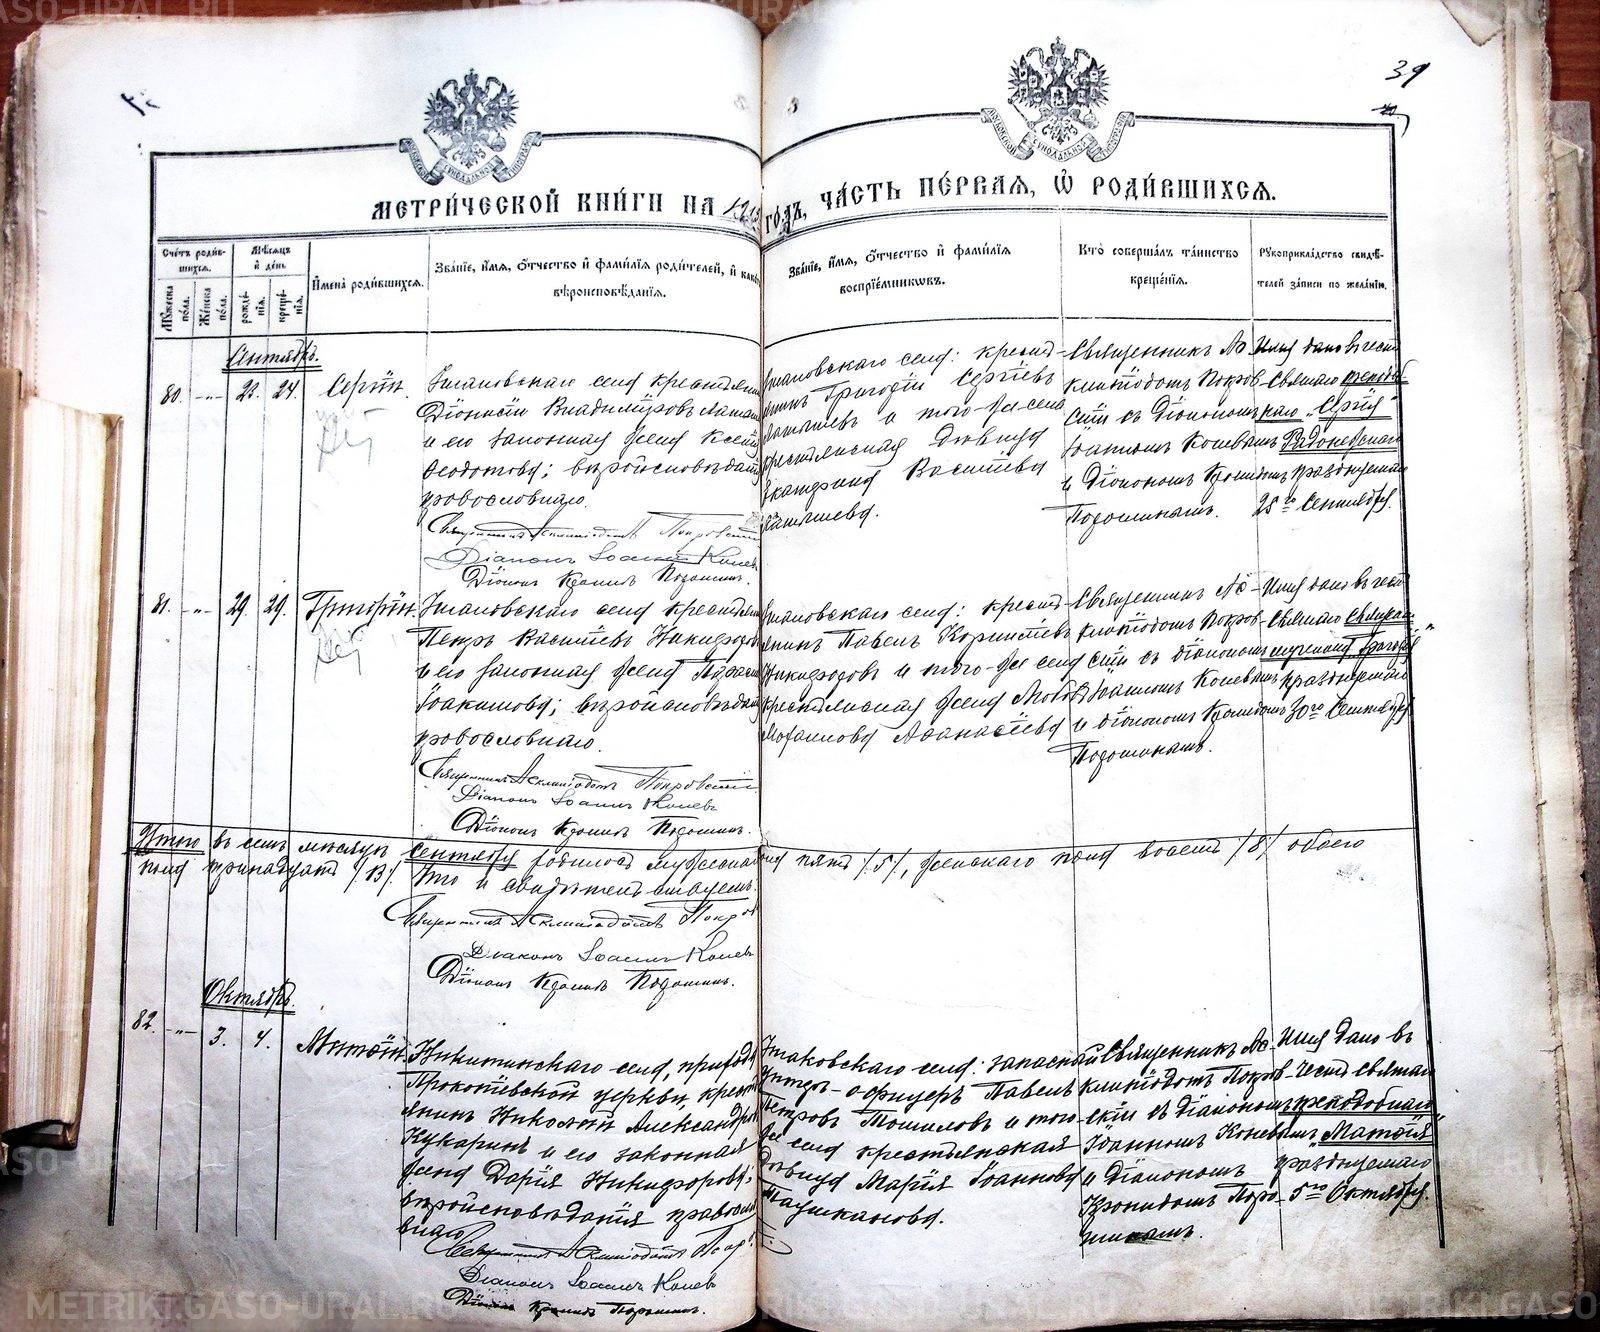 39
МЕТРИ́ЧЕСКОЙ КНИ́ГИ НА 1913 ГО́ДЪ, ЧА́СТЬ ПЕ́РВАЯ, Ѡ РОДИ́ВШИХСЯ.
Сче́тъ роди́вшихся.
Мѣ́сяцъ и҆ де́нь
Му́жеска по́ла.
Же́нска по́ла.
рожде́нїя.
креще́нїя.
И҆мена̀ роди́вшихся.
Зва́нїе, и҆́мя, ѻ҆́тчество и҆ фами́лїя роди́телей, и҆ како́
вѣроисповѣ́данїя.
Зва́нїе, и҆́мя, ѻ҆́тчество и҆ фами́лїя
воспрїе́мниковъ.
Кто̀ соверша́лъ та́инство
креще́нїя.
Рукоприкла́дство свидѣ́-
телей за́писи по жела́нїю.
Сентябрь.
80. -„- 23. 24. Сергій.
Усть
крестьян
Діонисій Владиміровъ
и его законная жена Ксенія
Ѳеодотова; вѣроисповѣданія
православнаго.
Священникъ Асклипіодотъ Покровскій
Діаконъ Іоаннъ Коневъ
Діаконъ Кронидъ Порошинъ.
села: крест-
Григорій Сергіевъ
и того-же села
крестьянская дѣвица
Екатерина Васильева
Священникъ Ас-
клипіодотъ Покров-
скій съ діакономъ
Іоанномъ Коневымъ
и діакономъ Кронидомъ
Порошинымъ.
Имя дано въ честь
Святаго преподоб-
наго „Сергія"
Радонежскаго
празднуемаго
25го Сентября.
81. -„- 29. 29. Григорій.
села крестьян
Петръ Васильевъ Никифоровъ
и его законная жена Параскева
Іоакимова; вѣроисповѣданія
православнаго.
Священникъ Асклипіодотъ Покровскій
Діаконъ Іоаннъ Коневъ
Діаконъ Кронидъ Порошинъ.
села: крест-
янинъ Павелъ Корниліевъ
Никифоровъ и того-же села
крестьянская жена Любовь
Михаилова Аѳанасіева
Священникъ Ас-
клипіодотъ Покров-
скій съ діакономъ
Іоанномъ Коневымъ
и діакономъ Кронидомъ
Порошинымъ.
Имя дано въ честь
Святаго священно-
мученика „Григорія"
празднуемаго
30го Сентября
Итого въ семъ мѣсяцѣ Сентябрѣ родилось мужескаго пола пять /5/, женскаго пола восемь /8/ обоего
пола тринадцать /13/. Что и свидѣтельствуемъ.
Священникъ Асклипіодотъ Покров
Діаконъ Іоаннъ Коневъ
Діаконъ Кронидъ Порошинъ.
Октябрь.
82. -„- 3. 4. Матѳій.
Никитинскаго села, прихода
Прокопіевской церкви, крест
янинъ Николай Александровъ
Кукаринъ и его законная
жена Дарія Никифорова;
вѣроисповѣданія православ
наго
Священникъ Асклипіодотъ Покр
Діаконъ Іоаннъ Коневъ
Діаконъ Кронидъ Порошинъ.
села: запасной
Унтеръ-офицеръ Павелъ
Петровъ Томиловъ и того-
же села крестьянская
дѣвица Марія Іоаннова
Таушканова.
Священникъ Ас-
клипіодотъ Покров-
скій съ діакономъ
Іоанномъ Коневымъ
и діакономъ
Кронидомъ Поро-
шинымъ.
Имя дано въ
честь святаго
преподобнаго
„Матѳія"
празднуемаго
5го Октября.
METRIKI.GASO-URAL.RU
METRIKI.GASO